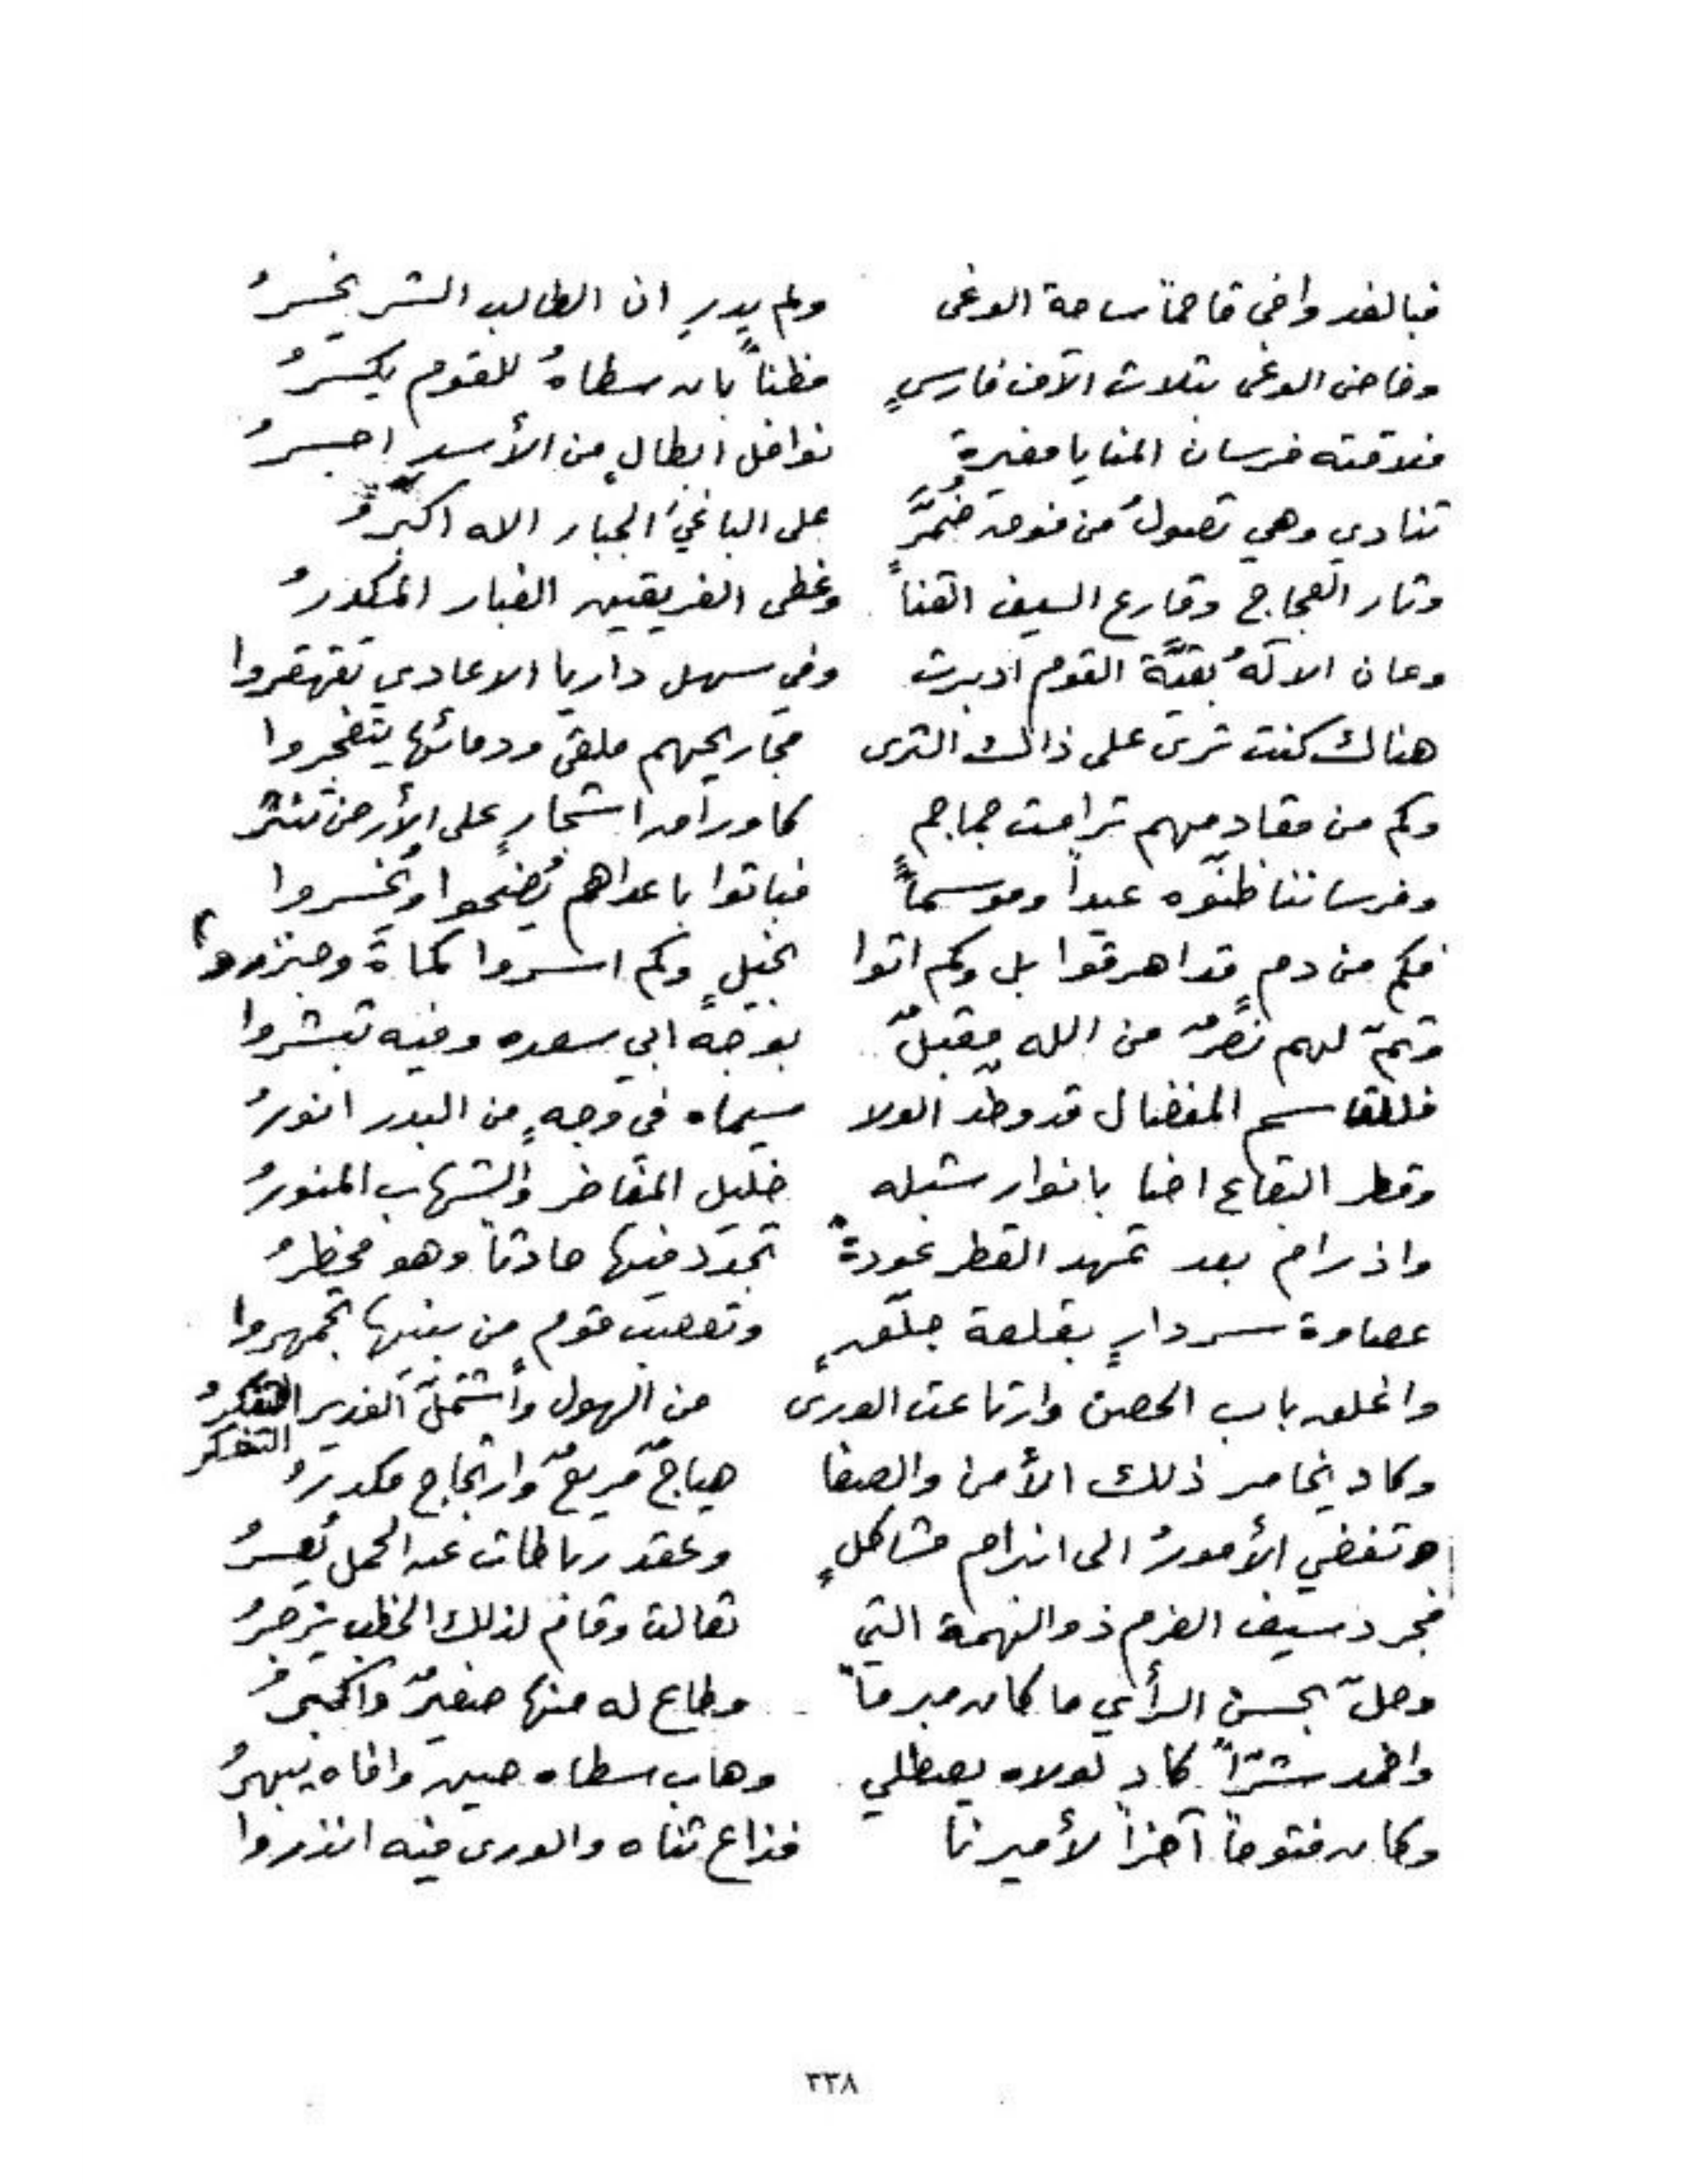 فبالغد وافى قاحماً ساحة الوغى ولم يدرِ ان الطالب الشر يخسرُ
وخاض الوغى بثلاث الآف فارسٍ فظناً بان سطاهُ للقوم يكسرُ
فلاقته فرسان المنايا مغيرةٍ نوافل ابطالٍ من الأسدِ اجسرُ
تنادي وهي تصولُ من فوق ضُمَّرٍ على الباغيُ الجبار الله اكبرُ
وثار العجاج وقارع السيف القنا وغطى الفريقين الغبار المكدرُ
وعان الالهُ بقيَّة القوم ادبرت وفي سهل داريا الاعادي تقهقروا
هناك كنت ترى على ذاك الثرى مجاريحهم ملقى ودمائها يتفجروا
وكم من مقادمهم ترامت جماجم كما وراق اشجارٍ على الأرض تنثر
وفرساننا ظنّوه عيداً وموسماً فباتوا باعداهم يُضحوا ويُخسروا
فكم من دمٍ قد اهرقوا بل وكم اتوا بخيلٍ وكم اسروا كماةً وجنزروا
وتمّ لهم نصرٌ من الله مقبلٌ بوجه ابي سعده وفيه تبشروا
فللقاسم المفضال قد وطد الولا سيماه في وجهٍ من البدر انورُ
وقطر البقاع اضا بانوار شبله خليل المفاخر والشهاب المنورُ
واذ رام بعد تمهد القطر عودةً تجدد فيها حادثاً وهو مخطرُ
عصاوة سردارٍ بقلعة جلّقٍ وتعصيب قومٍ من بنيها تجمهروا
واغلق باب الحصن وارتاعت الورى من الهول واشتملَ الغدير التفكرُ
التفكر
وكاد يخامر ذلك الأمن والصفا هياجٌ مريعٌ وارتجاج مكدرُ
وتفضي الأمورُ الى انبرام مشاكلٍ وعقد رباطات عن الحمل تُعسرُ
فجرد سيف العزم ذو الهمة التي تعالت وقام لذلك الخطب يزجرُ
وحلّ بحسن الرأي ما كان مبرماً وطاع له منها صغيرٌ واكبرُ
واخمد شرّاً كاد لولاه يصطلي وهاب سطاه حين وافاه يبهرُ
وكان فتوحاً آخراً لأميرنا فذاع ثناه والورى فيه انذروا
٣٣٨